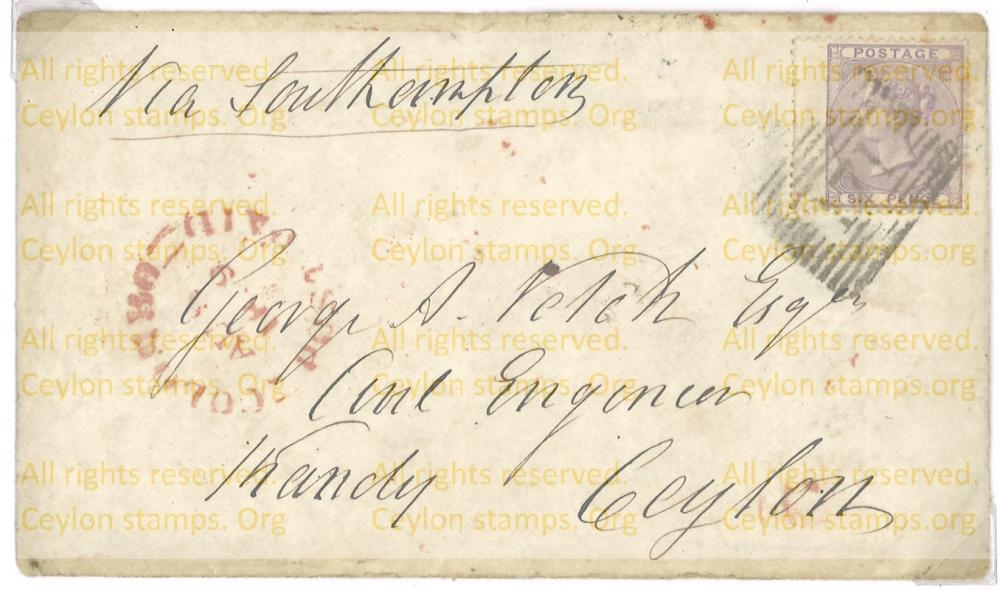 Via Southampton
POSTAGE
SIX PENCE
George A. Vetch Esqre
Civil Engineer
Kandy Ceylon
All rights reserved. All rights reserved. All rights reserved.
Ceylon stamps. Org Ceylon stamps. Org Ceylon stamps.org
All rights reserved. All rights reserved. All rights reserved.
Ceylon stamps. Org Ceylon stamps. Org Ceylon stamps.org
All rights reserved. All rights reserved. All rights reserved.
Ceylon stamps. Org Ceylon stamps. Org Ceylon stamps.org
All rights reserved. All rights reserved. All rights reserved.
Ceylon stamps. Org Ceylon stamps. Org Ceylon stamps.org